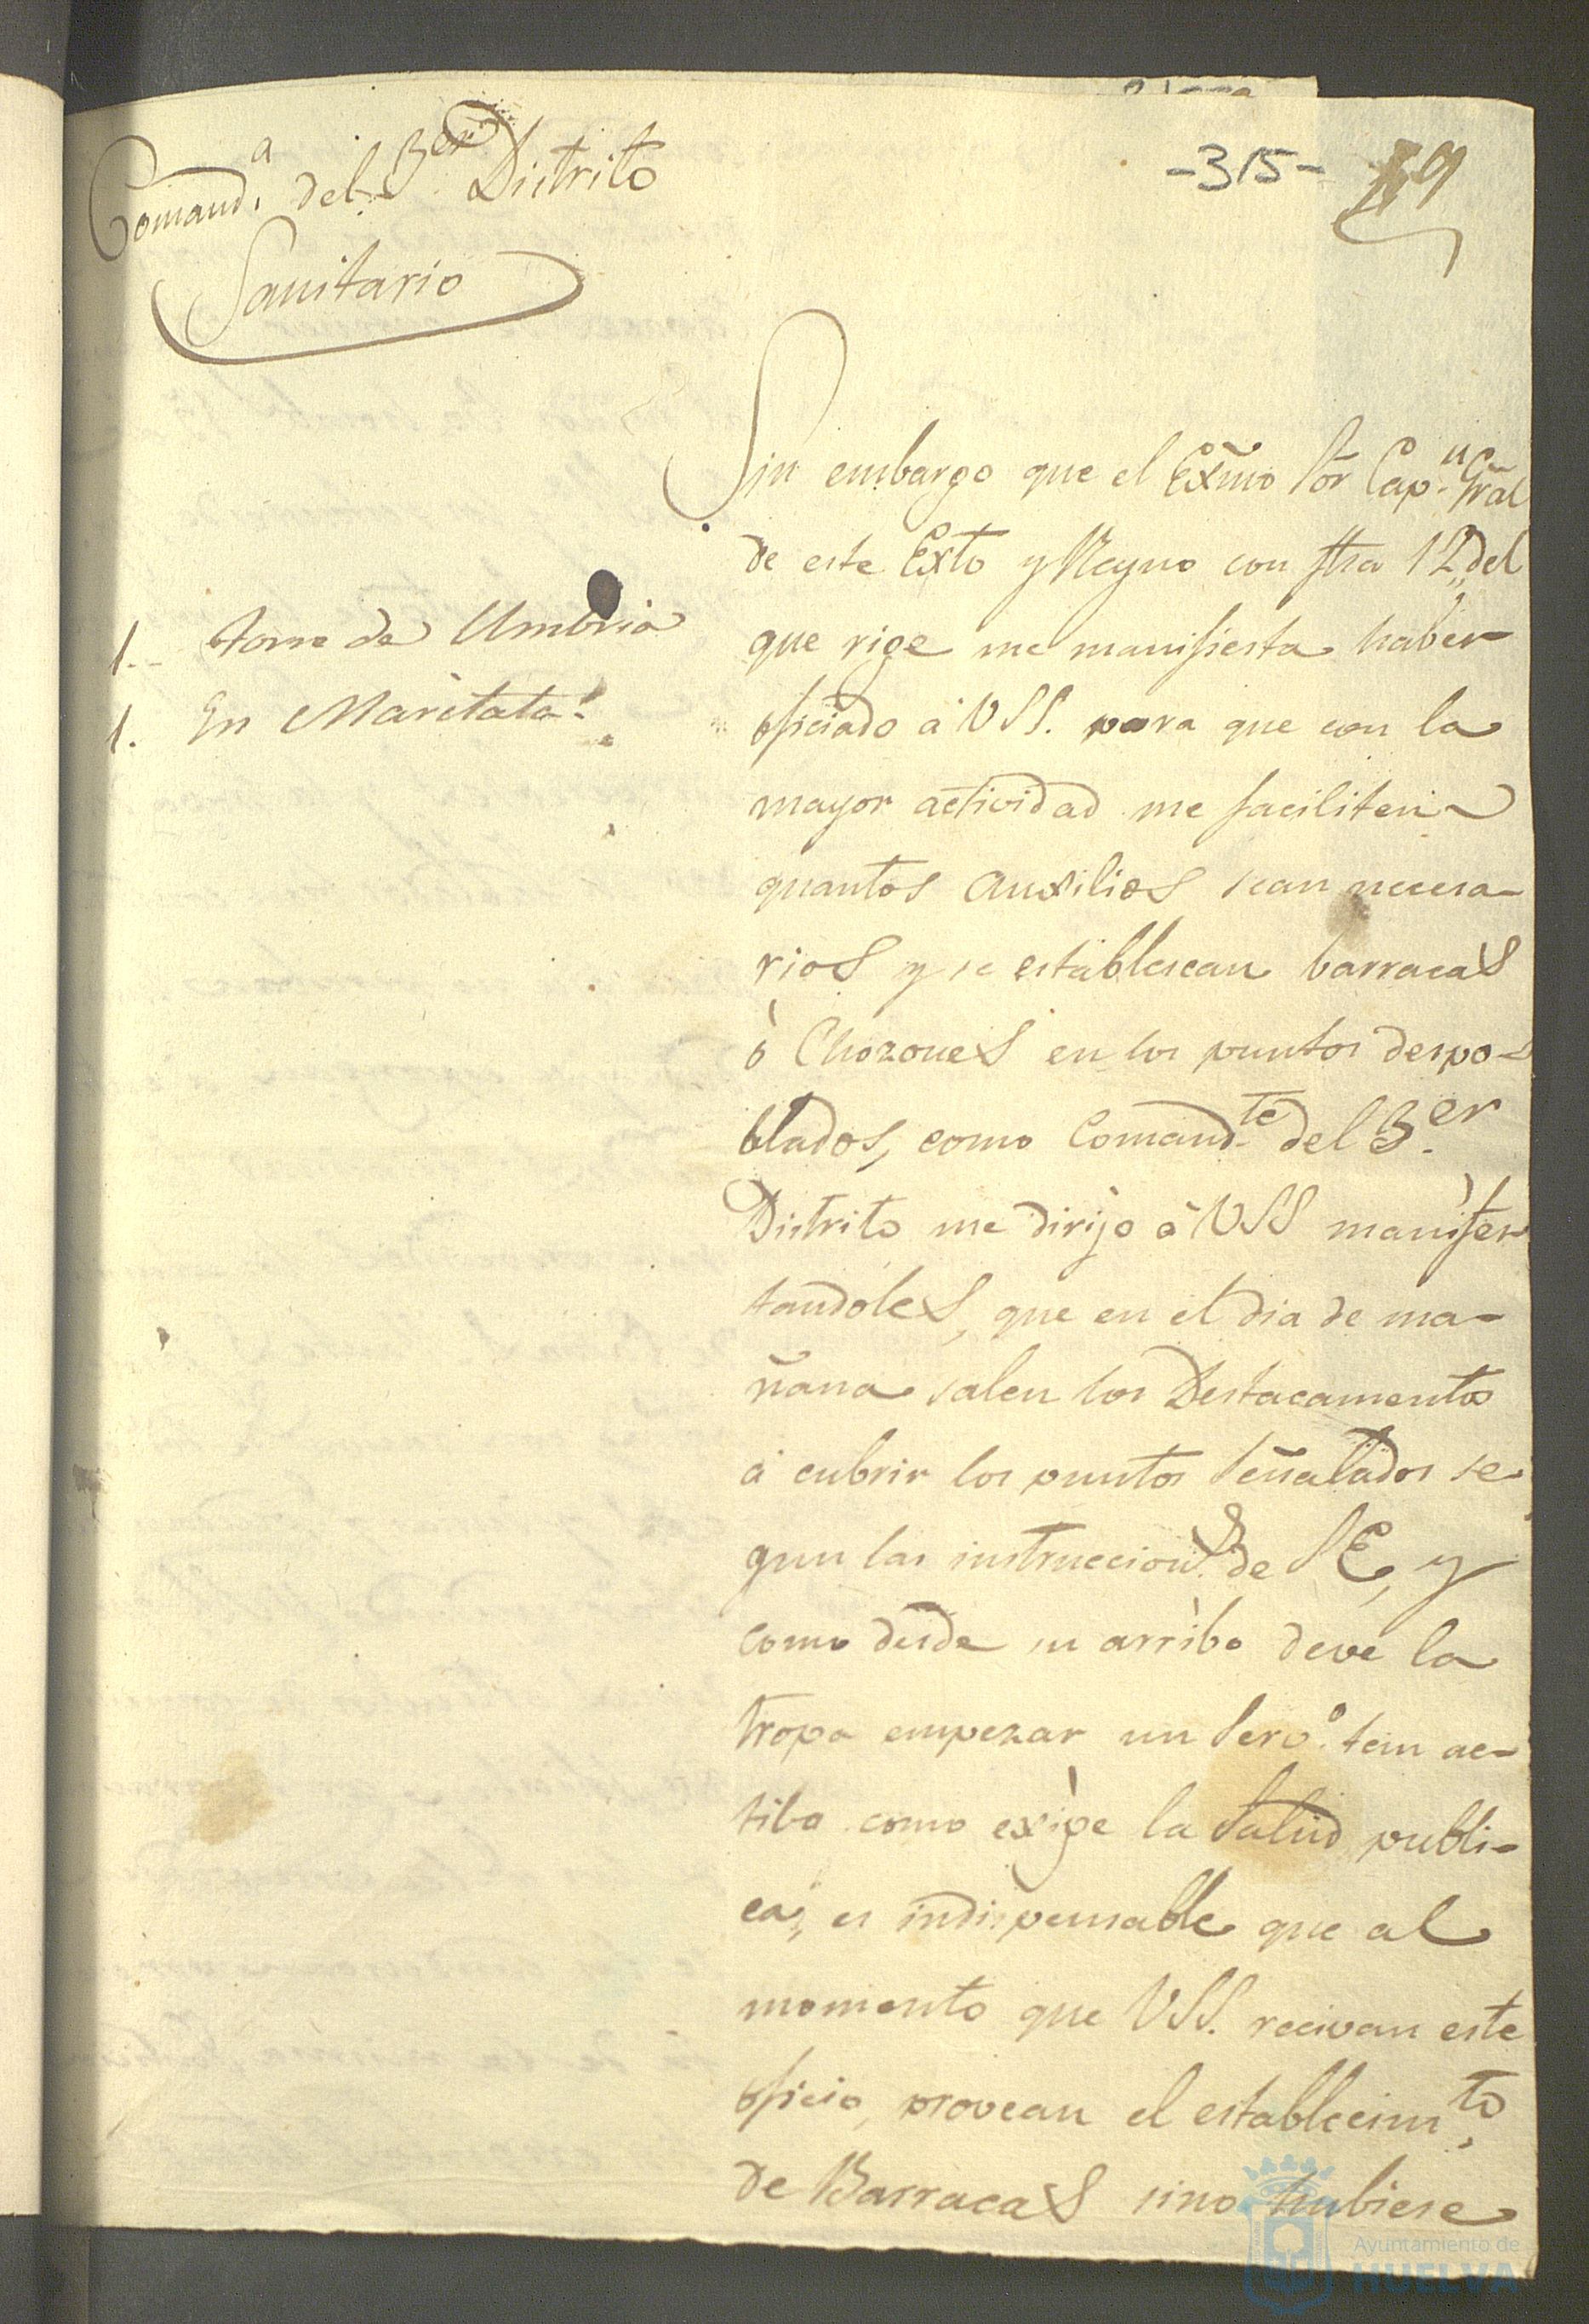 Comand.ª del 3er Distrito
Sanitario
-315-
Sin embargo que el Exm̃o Sor Cap.n Gr̃al
de este Exto y Reyno con fha 12,, del
que rige me manifiesta haber
oficiado á VSS. para que con la
mayor actividad me faciliten
quantos auxilios sean necesa-
rios y se establescan barracas
ò Chozones en los puntos despo-
blados, como Comand.te del 3.er
Distrito me dirijo á VSS manifes
tandoles, que en el dia de ma-
ñana salen los Destacamentos
á cubrir los puntos señalados se
gun las instruccion.s de SE, y
como desde su arribo deve la
tropa empezar un serv.º tan ac-
tibo como exige la salud publi-
ca, es indispensable que al
momento que VSS. recivan este
oficio, provean el establecim.to
de Barracas sino hubiese
1.. torre de Umbria
1. En
Ayuntamiento de
HUELVA